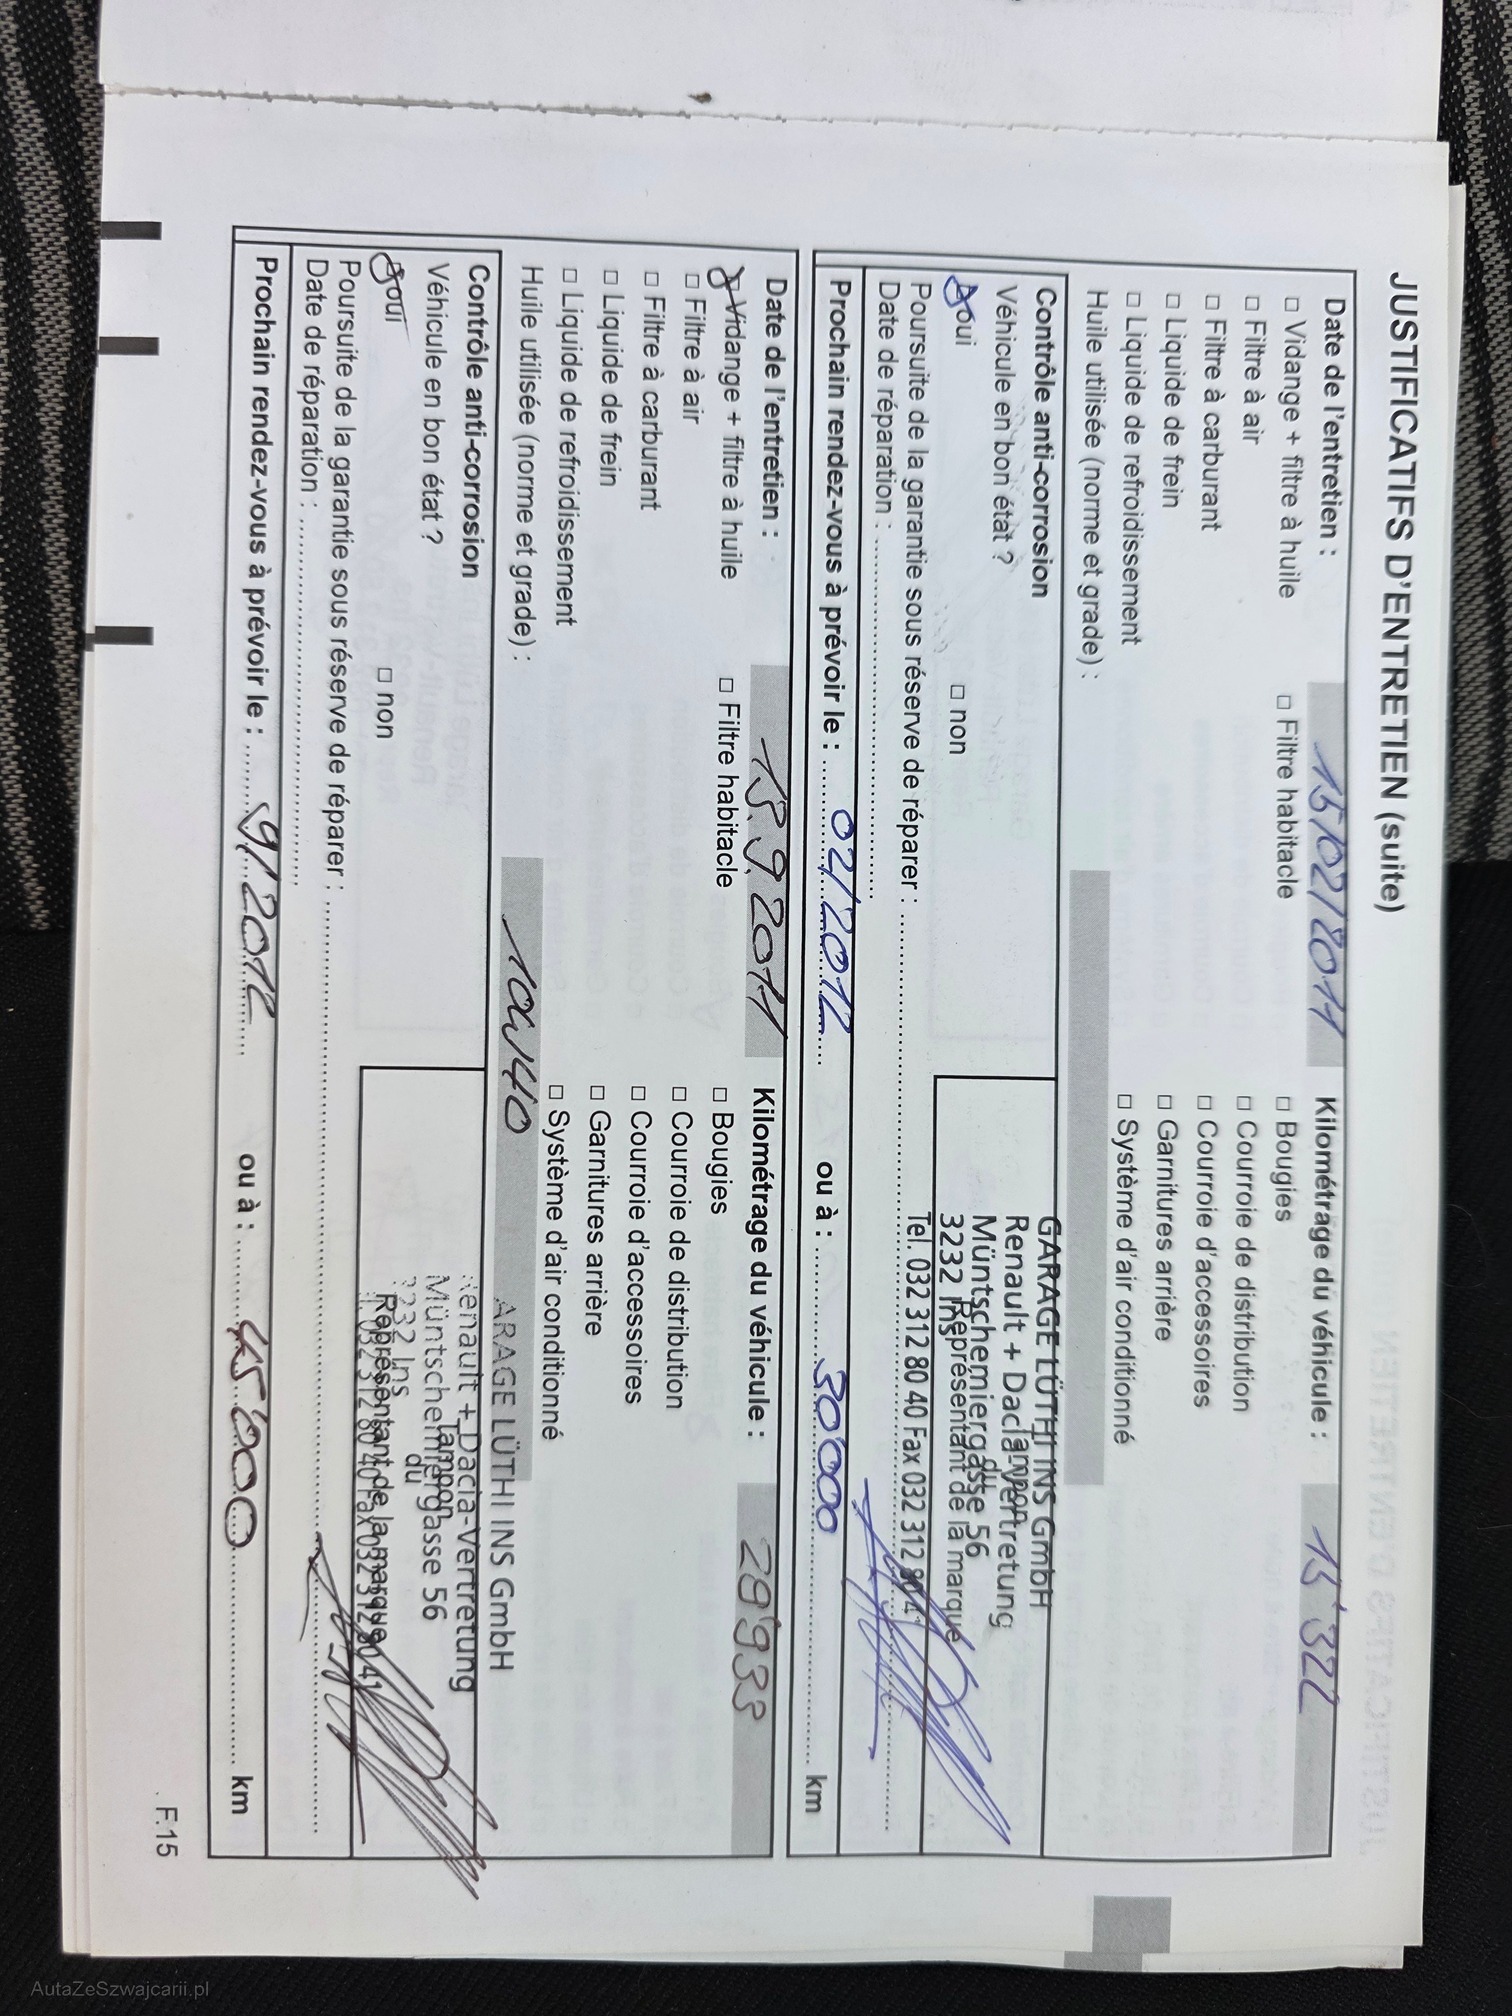 JUSTIFICATIFS D'ENTRETIEN (suite)
Date de l'entretien : 15/02/2011 Kilométrage du véhicule : 15'322
□ Vidange + filtre à huile □ Filtre habitacle □ Bougies
□ Filtre à air □ Courroie de distribution
□ Filtre à carburant □ Courroie d'accessoires
□ Liquide de frein □ Garnitures arrière
□ Liquide de refroidissement □ Système d'air conditionné
Huile utilisée (norme et grade) :
Contrôle anti-corrosion
GARAGE LÜTHI INS GmbH
Véhicule en bon état ?
Renault + Dacia-Vertretung
Tampon
Müntschemiergasse 56
du
oui □ non
3232 Ins
Représentant de la marque
Poursuite de la garantie sous réserve de réparer :
Tel. 032 312 80 40 Fax 032 312 80 41
Date de réparation :
Prochain rendez-vous à prévoir le : 02/2012 ou à : 30'000 km
Date de l'entretien : 13.9.2011 Kilométrage du véhicule : 28'933
Vidange + filtre à huile □ Filtre habitacle □ Bougies
□ Filtre à air □ Courroie de distribution
□ Filtre à carburant □ Courroie d'accessoires
□ Liquide de frein □ Garnitures arrière
□ Liquide de refroidissement □ Système d'air conditionné
Huile utilisée (norme et grade) : 10W40
ARAGE LÜTHI INS GmbH
Contrôle anti-corrosion
enault + Dacia-Vertretung
Tampon
Véhicule en bon état ?
Müntschemiergasse 56
du
oui □ non
232 Ins
Représentant de la marque
032 312 80 40 Fax 032 312 80 41
Poursuite de la garantie sous réserve de réparer :
Date de réparation :
Prochain rendez-vous à prévoir le : 9/2012 ou à : 45'000 km
F.15
AutaZeSzwajcarii.pl